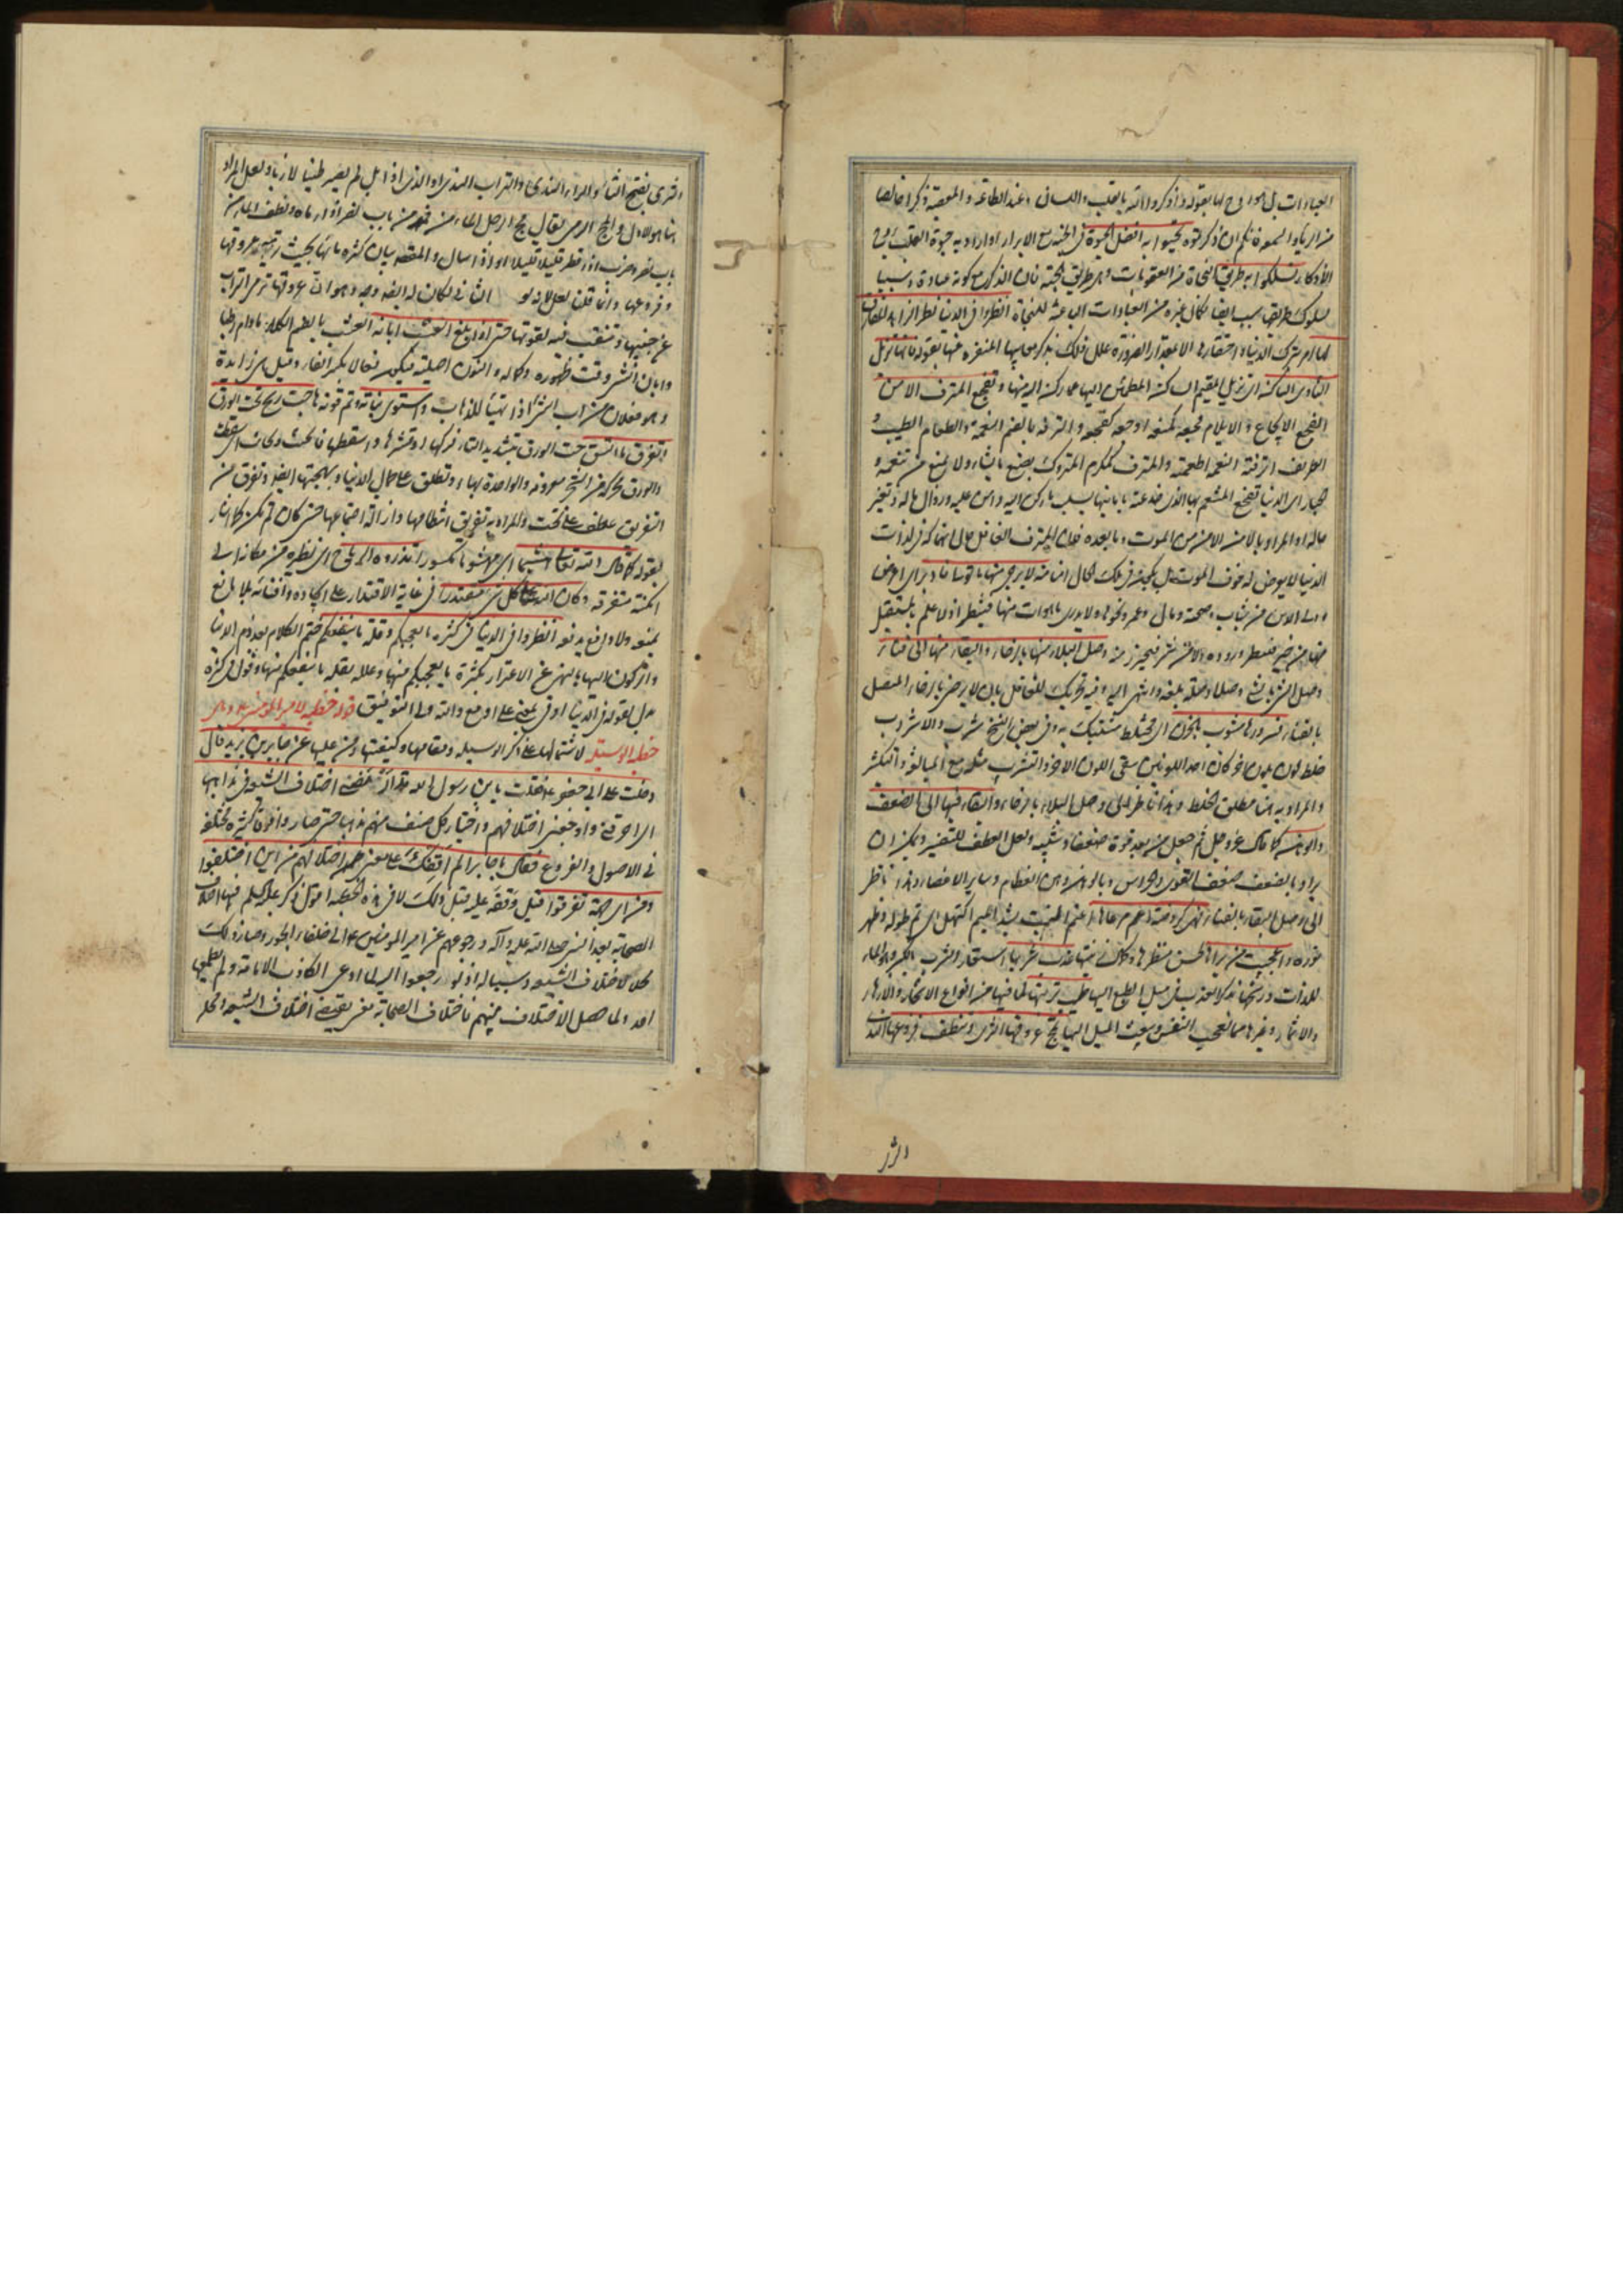 العبادات بل هو روح لها بقوله واذكروا الله بالقلب واللسان وعند الطاعة والمعصية ذكرا خالصا
من الرياء والسمعة فانكم ان ذكرتموه تحيوا به افضل الحيوة في الجنة مع الابرار او اراد به حيوة القلب
الاذكار وتسلكوا به طريق النجاة من العقوبات وهو طريق الجنة فان الذكر مع كونه عبادة وسببا
لسلوك طريقها سبب ايضا لكمال غيره من العبادات الباعثة للنجاة انظروا في الدنيا نظر الزاهد المفارق لها
امر بترك الدنيا واحتقارها الا بقدر الضرورة وعلل ذلك بذكر معايبها المنفرة عنها بقوله فانها تزيل
الثاوي الساكن اي تزيل المقيم الساكن المطمئن اليها عما ركن اليه منها وتفجع المترف الآمن
التفجيع الايجاع والايلام فجعه كمنعه اوجعه كفجعه والترفة بالضم النعمة والطعام الطيب و
الظريف اترفته النعمة اطعمته والمترف كمكرم المتروك يصنع ما يشاء ولا يمنع من تنعمه و
الجبار اي الدنيا تفجع المتنعم بها الذي خدعته باياتها بسلب ما ركن اليه وامن عليه وزوال ماله وتغير
حاله او المراد بالامن الامن من الموت وما بعده فان المترف الغافل حال انهماكه في لذات
الدنيا لا يعرض له خوف الموت بل في تلك الحال امن منه لا يرجى منها ما تولى فادبر اي اعرض
وولى الادبار من شباب وصحة ومال وعمر ونحوها ولا يدرى ما هو آت منها فينتظر اذ لا علم بالمستقبل
منها من خير فينتظر وروده ولا من شر فيحترز منه وصل البلاء منها بالرخاء والبقاء منها الى فناء
وصل الشئ بالشئ وصلا وصلة بلغه وانتهى اليه وفيه تحريك للغافل بان لا يرضى بالرخاء المتصل
بالفناء فسرورها مشوب بالحزن اي مختلط مشتبك به وفي بعض النسخ مشرب والاشراب
خلط لون بلون اخر كان احد اللونين سقى اللون الاخر والتشرب مثله مع المبالغة والتكثر
والمراد به هنا مطلق الخلط وهذا ناظر الى وصل البلاء بالرخاء والبقاء فيها الى الضعف
والوهن كما قال عز وجل ثم جعل من بعد قوة ضعفا وشيبة ولعل العطف للتفسير ويمكن ان
يراد بالضعف ضعف القوى والحواس وبالوهن وهن العظام وساير الاعضاء وهذا ناظر
الى وصل البقاء بالفناء فهي كروضة اعتم مرعاها اعتم النبت بشد الميم اكتهل اي تم طوله وظهر
نوره واعجبت من يراها لحسن منظرها وكمال زينتها عذب شربها استعار الشرب بالكسر وهو الماء
للذات ورشحها بذكر العذب ليفيد ميل الطبع اليها طيب تربتها لما فيها من انواع الاشجار والازهار
والاثمار وغيرها مما تعجب النفس ويبعث الميل اليها تمج عروقها الثرى وتنطف فروعها الندى
الثرى
الثرى بفتح الثاء والراء الندى والتراب الندي او الذي اذا بل لم يصر طينا لازبا ولعل المراد
هنا هو الاول والمج الرمي يقال مج الرجل الماء من فيه من باب نصر اذا رماه ونطف الماء من
باب نصر وضرب اذا قطر قليلا قليلا او اذا سال والمقصود بيان كثرة مائها بحيث ترميه عروقها
وفروعها وانما قلنا لعل لانه لو الثاني لكان له ايضا وجه وهو ان عروقها ترمي التراب
عن جنبيها وتنقب فيه لقوتها حتى اذا بلغ العشب ابانه العشب بالضم الكلاء ما دام رطبا
وابان الشئ وقت ظهوره وكماله والنون اصلية فيكون فعالا بكسر الفاء وقيل هي زايدة
وهو فعلان من اب الشئ اذا تهيا للذهاب واستوى بنانه وتم قوته هاجت ريح تحت الورق
وتفرق ما اتسق حت الورق بتشديد التاء فركها وقشرها واسقطها فانحتت وتحاتت اي سقطت
والورق محركة من الشجر معروفة والواحدة بهاء وتطلق على جمال الدنيا وبهجتها ايضا وتفرق من
التفريق عطف على تحت والمراد به تفريق انتظامها وازالة اجتماعها حتى كان لم تكن كما اشار
بقوله كما قال الله تعالى هشيما اي مهشوما مكسورا تذروه الرياح اي تطيره من مكانه الى
امكنة متفرقة وكان الله على كل شئ مقتدرا في غاية الاقتدار على ايجاده وافنائه بلا مانع
يمنعه ولا دافع يدفعه انظروا في الدنيا في كثرة ما يعجبكم وقلة ما ينفعكم ختم الكلام بعد ذم الدنيا
والركون اليها بالنهي عن الاغترار بكثرة ما يعجبكم منها وعلله بقلة ما ينفعكم منها وقوله في كثرة
بدل بقوله في الدنيا او في بمعنى على او مع والله ولي التوفيق قوله خطبة لامير المؤمنين ع وهي
خطبة الوسيلة لاشتمالها على ذكر الوسيلة ومقامها وكيفيتها ومن عليها عن جابر بن يزيد قال
دخلت على ابي جعفر ع فقلت يا بن رسول الله قد ارمضني اختلاف الشيعة في مذاهبها
اي احرقني واوجعني اختلافهم واختيار كل صنف منهم مذهبا حتى صاروا فرقا كثيرة مختلفة
في الاصول والفروع فقال يا جابر الم اقفك على معنى اختلافهم من اين اختلفوا
ومن اي جهة تفرقوا قيل وقفه عليه قبل ذلك لا في هذه الخطبة اقول ذكر عليه السلم فيها اختلاف
الصحابة بعد النبي صلى الله عليه وآله ورجوعهم عن امير المؤمنين ع الى خلفاء الجور وصار ذلك
محلا لاختلاف الشيعة وسببا له اذ لو رجعوا اليه لما ادعى الكاذب الامامة ولم يطمع فيها
احد ولما حصل الاختلاف بينهم فاختلاف الصحابة مغن بمعنى اختلاف الشيعة